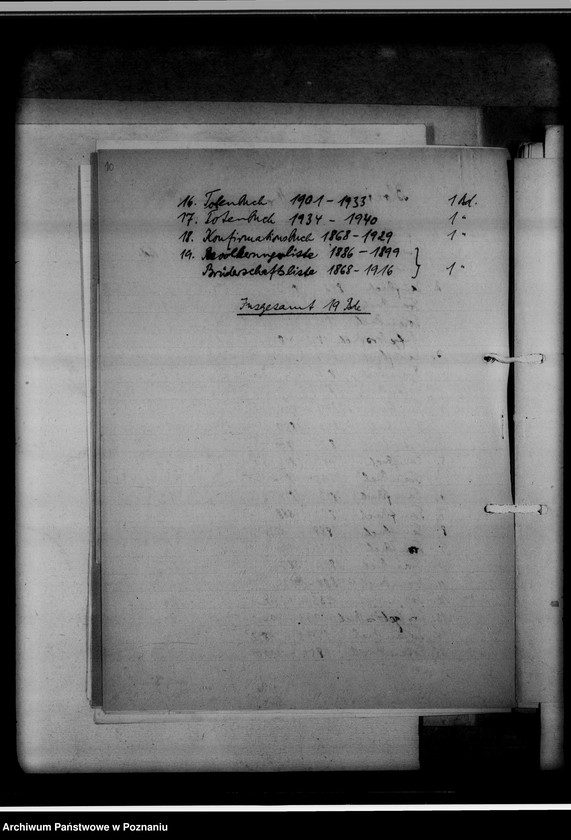 10
16. Totenbuch 1901 - 1933 1 Bd.
17. Totenbuch 1934 - 1940 1 "
18. Konfirmationsbuch 1868 - 1929 1 "
19. Bevölkerungsliste 1886 - 1899
Bruderschaftsliste 1868 - 1916 } 1 "
Insgesamt 19 Bde
Archiwum Państwowe w Poznaniu